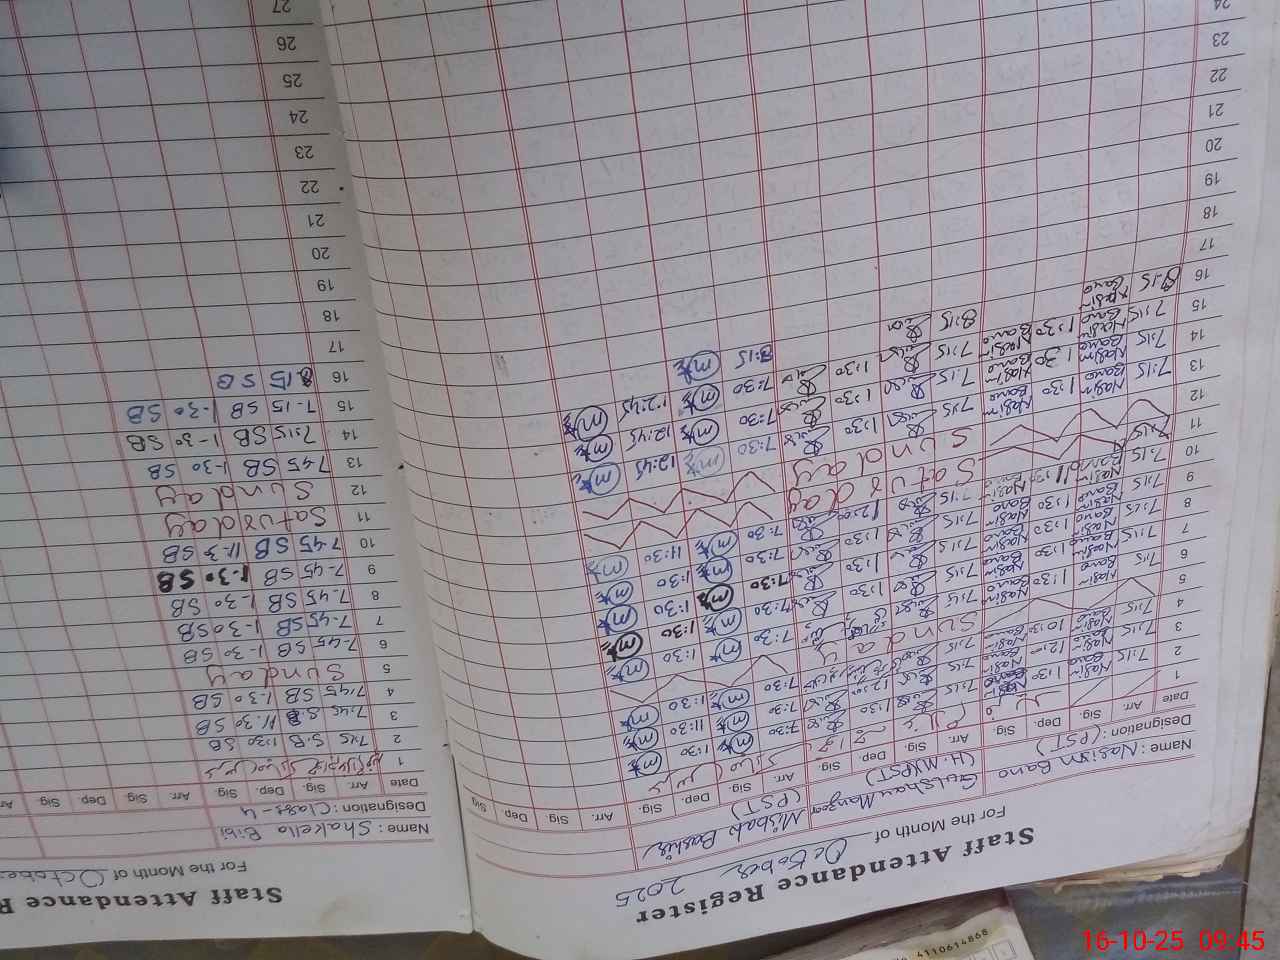 Staff Attendance Register
For the Month of October 2025
Name: Nasim Bano Gulshan Manzoor Misbah Bashir
Designation: (PST) (H.M/PST) (PST)
Date Arr. Sig. Dep. Sig. Arr. Sig. Dep. Sig. Arr. Sig. Dep. Sig. Arr. Sig. Dep. Sig.
1
2 7:15 Nasim Bano 1:30 7:15 1:30 7:30 1:30
3 7:15 Nasim Bano 12:00 Nasim Bano 7:15 12:00 7:30 11:30
4 7:15 Nasim Bano 10:30 Nasim Bano 7:15 7:30 1:30
5 Sunday
6 7:15 Nasim Bano 1:30 Nasim Bano 7:15 7:30 1:30
7 7:15 Nasim Bano 1:30 Nasim Bano 7:15 1:30 7:30 1:30
8 7:15 Nasim Bano 1:30 Nasim Bano 7:15 1:30 7:30 1:30
9 7:15 Nasim Bano 1:30 Nasim Bano 7:15 1:30 7:30 1:30
10 7:15 Nasim Bano 11:30 Nasim Bano 7:15 12:00 7:30 11:30
11 Saturday
12 Sunday
13 7:15 Nasim Bano 1:30 Nasim Bano 7:15 1:30 7:30 12:45
14 7:15 Nasim Bano 1:30 Nasim Bano 7:15 1:30 7:30 12:45
15 7:15 Nasim Bano 1:30 Nasim Bano 7:15 1:30 7:30 12:45
16 8:15 Nasim Bano 8:15 8:15
17
18
19
20
21
22
23
24
Staff Attendance R
For the Month of October
Name: Shakella Bibi
Designation: Class-4
Date Arr. Sig. Dep. Sig. Arr. Sig. Dep Sig. Ar
1
2 7:45 S.B 1:30 SB
3 7:45 S.B 11:30 SB
4 7:45 SB 1-30 SB
5 Sunday
6 7-45 SB 1-30 SB
7 7-45 SB 1-30 SB
8 7-45 SB 1-30 SB
9 7-45 SB 1-30 SB
10 7-45 SB 11-3 SB
11 Saturday
12 Sunday
13 7.45 SB 1-30 SB
14 7:15 SB 1-30 SB
15 7-15 SB 1-30 SB
16 8.15 SB
17
18
19
20
21
22
23
24
25
26
27
4110614868
16-10-25 09:45